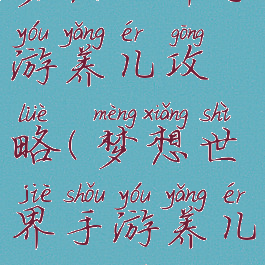 yóu yǎng ér gōng
游养儿攻
lüè mèng xiǎng shì
略(梦想世
jiè shǒu yóu yǎng ér
界手游养儿